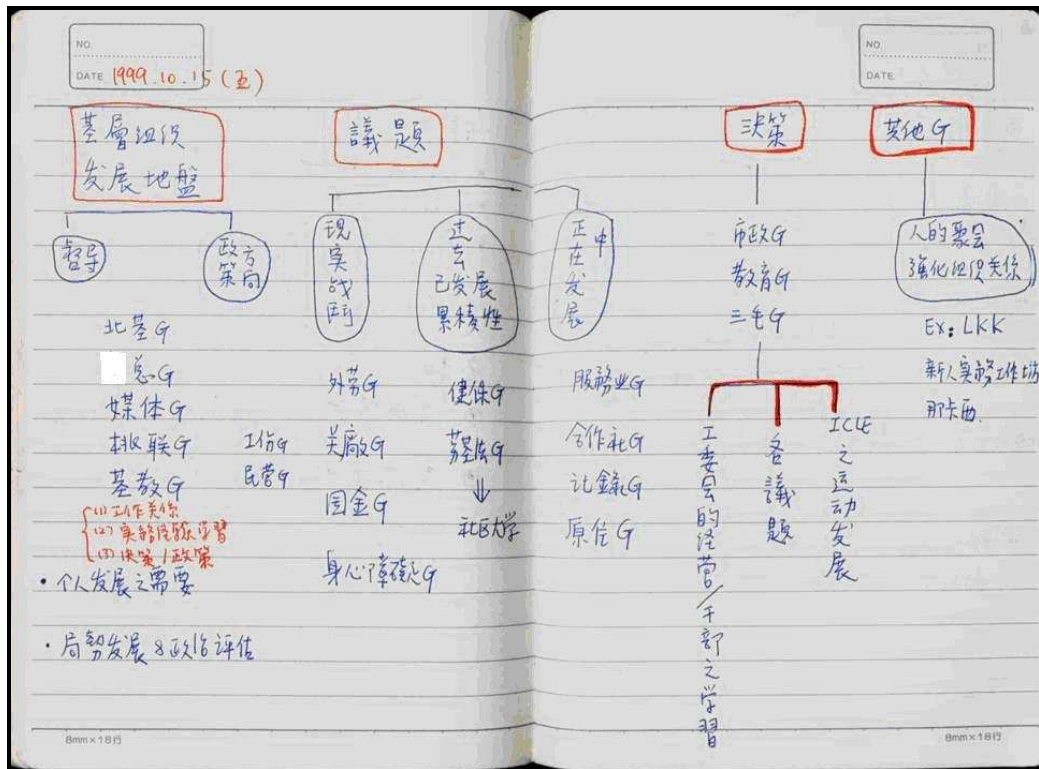 NO.
DATE 1999.10.15 (五)
基層组织
发展地盤
督导
政策
方向
北基G
总G
媒体G
桃联G
工伤G
基教G
民营G
(1) 工作关係
(2) 实務经驗学習
(3) 决策/政策
• 个人发展之需要
• 局势发展&政治评估
議題
现实战鬥
过去
已发展
累積性
正在发展中
外劳G
健保G
服務业G
关廠G
劳基法G
合作社G
国金G
社区大学
记錄G
原住G
身心障礙G
8mm×18行
NO.
DATE
决策
市政G
教育G
三毛G
工委会的经营/干部之学習
各議題
ICLE之运动发展
其他G
人的聚会
强化组织关係
EX: LKK
新人实務工作坊
那卡西
8mm×18行